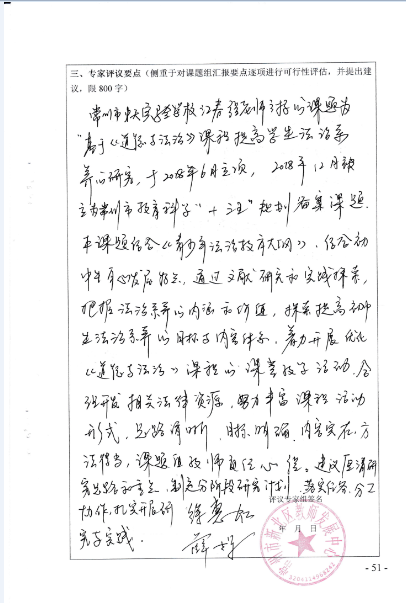 三、专家评议要点（侧重于对课题组汇报要点逐项进行可行性评估，并提出建
议，限 800 字）
常州市 实验学校 老师主持的课题为
“基于《道德与法治》课程提高学生法治素
养的研究，于2018年6月立项，2018年12月被
立为常州市教育科学“十三五”规划备案课题。
本课题结合《青少年法治教育大纲》，结合初
中生身心发展特点，通过文献研究和实践探索，
把握法治素养的内涵和价值，探索提高初中
生法治素养的目标与内容体系，着力开展优化
《道德与法治》课程的课堂教学活动，合
理开发相关法律资源，努力丰富课程活动
形式，思路清晰，目标明确，内容实在，方
法得当，课题组教师责任心强。建议厘清研
究思路和重点，制定分阶段研究计划，落实任务，分工
评议专家组签名
协作，扎实开展研
究与实践。
年 月 日
- 51 -